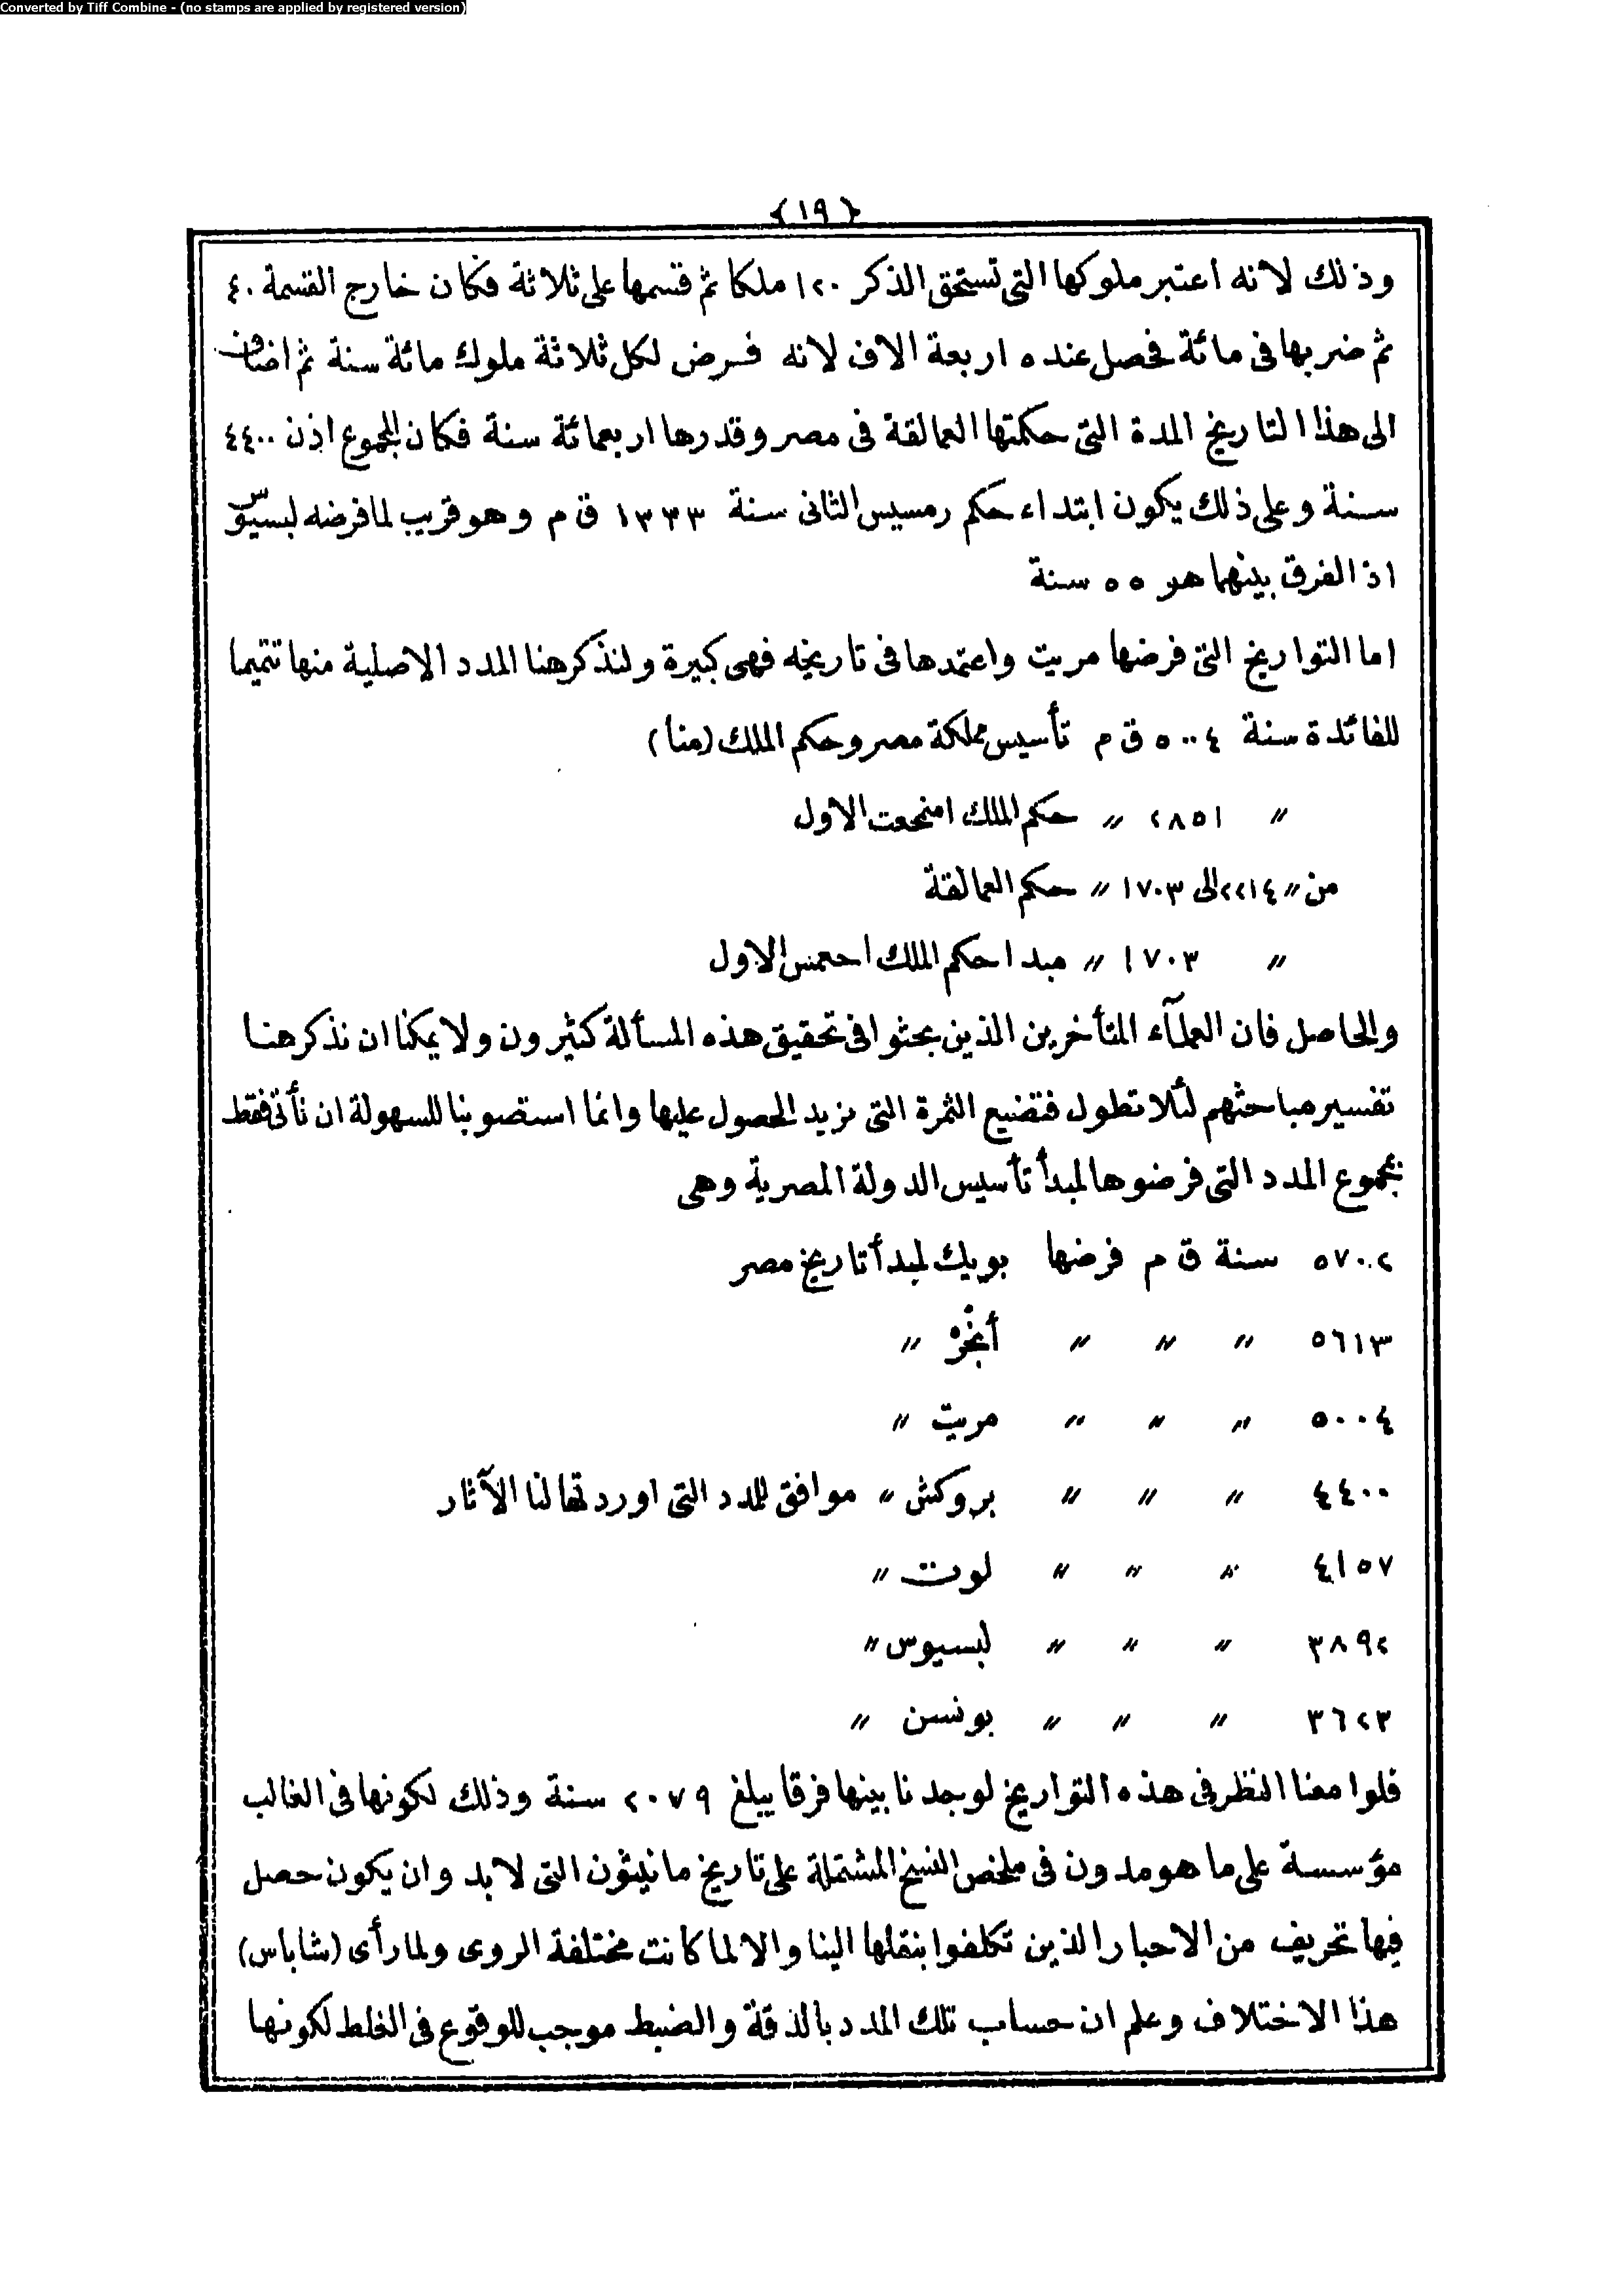 Converted by Tiff Combine - (no stamps are applied by registered version)
{١٩}
وذلك لانه اعتبر ملوكها التى تستحق الذكر ١٢٠ ملكا ثم قسمها على ثلاثة فكان خارج القسمة ٤٠
ثم ضربها فى مائة فحصل عنده اربعة الاف لانه فرض لكل ثلاثة ملوك مائة سنة ثم اضاف
الى هذا التاريخ المدة التى حكمتها العمالقة فى مصر وقدرها اربعمائة سنة فكان المجموع اذن ٤٤٠٠
سنة وعلى ذلك يكون ابتداء حكم رمسيس الثانى سنة ١٣٣٣ ق م وهو قريب لما فرضه لبسيوس
اذ الفرق بينهما هو ٥٥ سنة
اما التواريخ التى فرضها مريت واعتمدها فى تاريخه فهى كبيرة ولنذكر هنا المدد الاصلية منها تتميما
للفائدة سنة ٥٠٠٤ ق م تأسيس مملكة مصر وحكم الملك (منا)
〃 ٢٨٥١ 〃 حكم الملك امنحعت الاول
من 〃 ٢٢١٤ الى ١٧٠٣ 〃 حكم العمالقة
〃 ١٧٠٣ 〃 مبدا حكم الملك احعمس الاول
والحاصل فان العلمآء المتأخرين الذين بحثوا فى تحقيق هذه المسألة كثيرون ولا يمكنا ان نذكر هنا
تفسير مباحثهم لئلا تطول فتضيع الثمرة التى نريد الحصول عليها وانما استصوبنا للسهولة ان نأتى فقط
بمجموع المدد التى فرضوها لمبدأ تأسيس الدولة المصرية وهى
٥٧٠٢ سنة ق م فرضها بويك لمبدأ تاريخ مصر
٥٦١٣ 〃 〃 〃 أنجر 〃
٥٠٠٤ 〃 〃 〃 مريت 〃
٤٤٠٠ 〃 〃 〃 بروكش 〃 موافق للمدد التى اوردتها لنا الآثار
٤١٥٧ 〃 〃 〃 لوت 〃
٣٨٩٢ 〃 〃 〃 لبسيوس 〃
٣٦٢٣ 〃 〃 〃 بونسن 〃
فلوا معنا النظر فى هذه التواريخ لوجدنا بينها فرقا يبلغ ٢٠٧٩ سنة وذلك لكونها فى الغالب
مؤسسة على ما هو مدون فى ملخص النسخ المشتملة على تاريخ مانيثون التى لابد وان يكون حصل
فيها تحريف من الاحبار الذين تكلفوا بنقلها الينا والا لما كانت مختلفة الروى ولما رأى (شاباس)
هذا الاختلاف وعلم ان حساب تلك المدد بالدقة والضبط موجب للوقوع فى الغلط لكونها